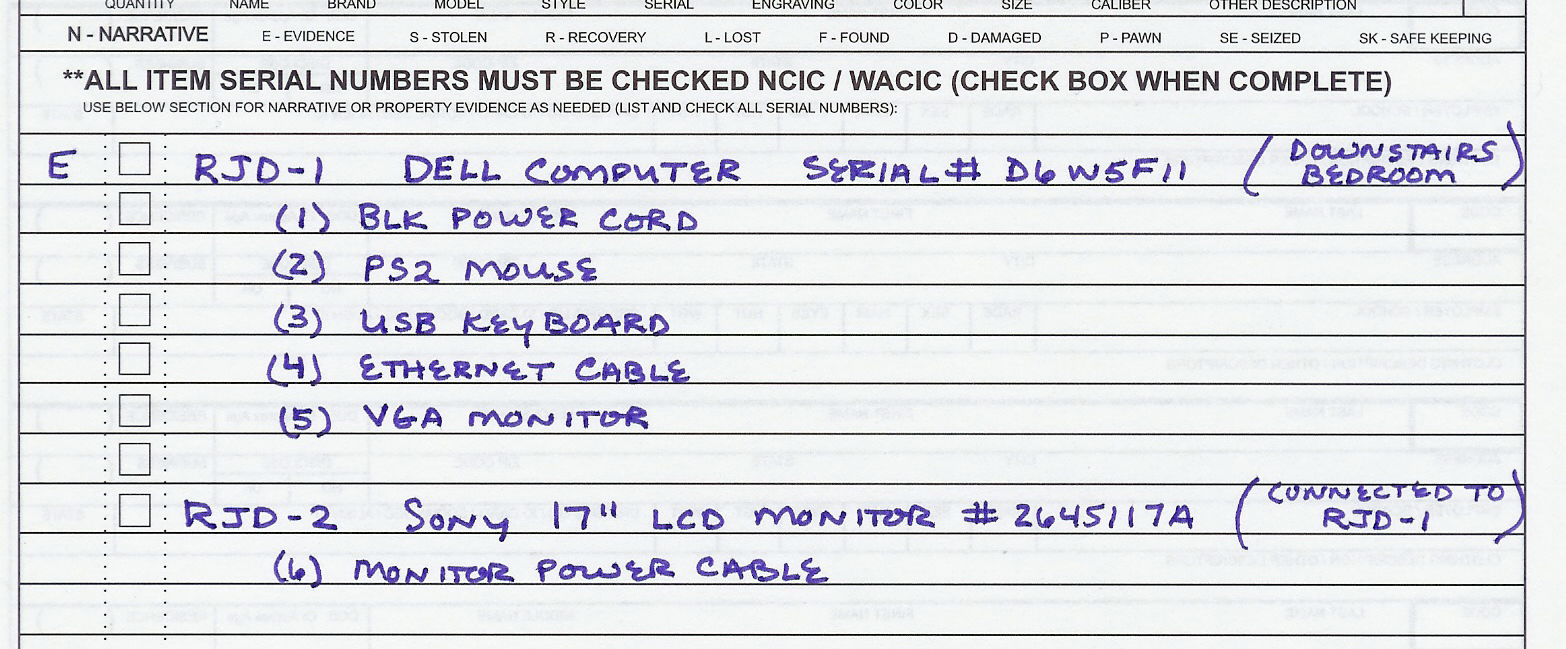 QUANTITY NAME BRAND MODEL STYLE SERIAL ENGRAVING COLOR SIZE CALIBER OTHER DESCRIPTION
N - NARRATIVE E - EVIDENCE S - STOLEN R - RECOVERY L - LOST F - FOUND D - DAMAGED P - PAWN SE - SEIZED SK - SAFE KEEPING
**ALL ITEM SERIAL NUMBERS MUST BE CHECKED NCIC / WACIC (CHECK BOX WHEN COMPLETE)
USE BELOW SECTION FOR NARRATIVE OR PROPERTY EVIDENCE AS NEEDED (LIST AND CHECK ALL SERIAL NUMBERS):
E RJD-1 DELL COMPUTER SERIAL# D6W5F11 (DOWNSTAIRS
BEDROOM)
(1) BLK POWER CORD
(2) PS2 MOUSE
(3) USB KEYBOARD
(4) ETHERNET CABLE
(5) VGA MONITOR
RJD-2 SONY 17" LCD MONITOR # 2645117A (CONNECTED TO
RJD-1)
(6) MONITOR POWER CABLE